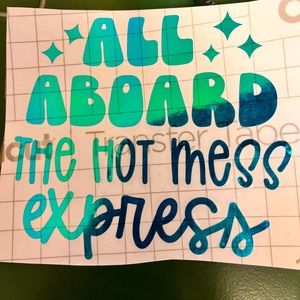 ALL
ABOARD
THE HOT mess
express
Transfer Tape